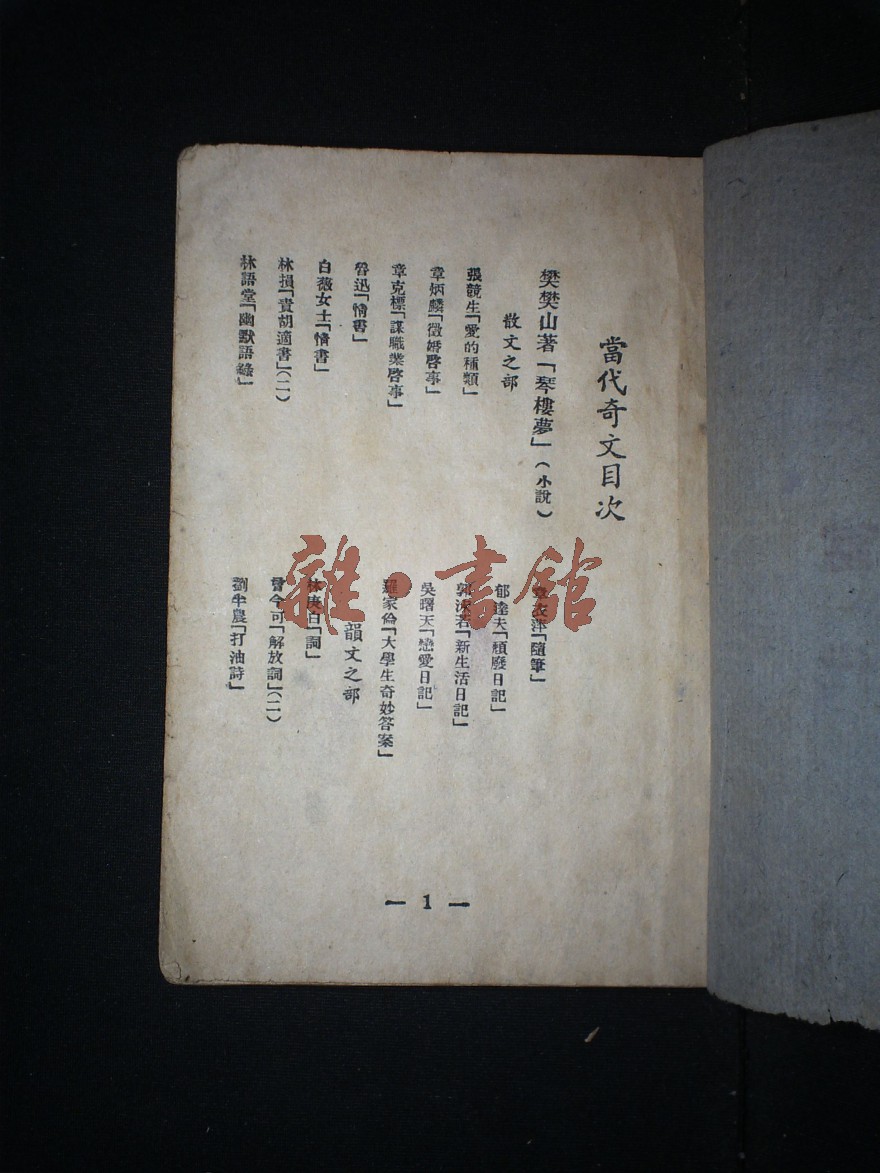 當代奇文目次
樊樊山著「琴樓夢」(小說)
散文之部
張競生「愛的種類」
章炳麟「徵婚啓事」
章克標「謀職業啓事」
魯迅「情書」
白薇女士「情書」
林損「責胡適書」(二)
林語堂「幽默語錄」
章衣萍「隨筆」
郁達夫「頹廢日記」
郭沫若「新生活日記」
吳曙天「戀愛日記」
羅家倫「大學生奇妙答案」
韻文之部
林庚白「詞」
曾今可「解放詞」(二)
劉半農「打油詩」
— 1 —
雜·書館